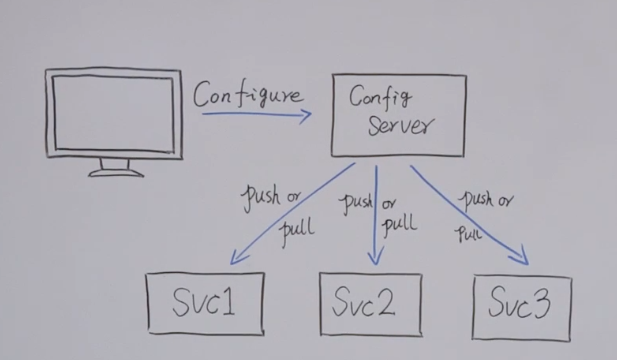 Configure
Config
Server
push or
pull
push or
pull
push or
pull
Svc1
Svc2
Svc3